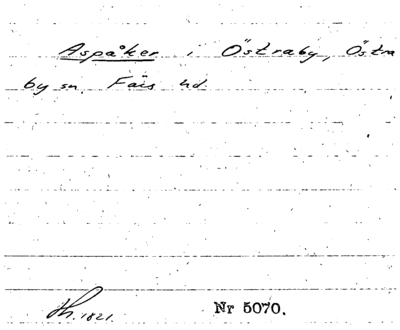 Aspåker i Östraby, Östra
by sn. Färs hd.
Th. 1821.
Nr 5070.